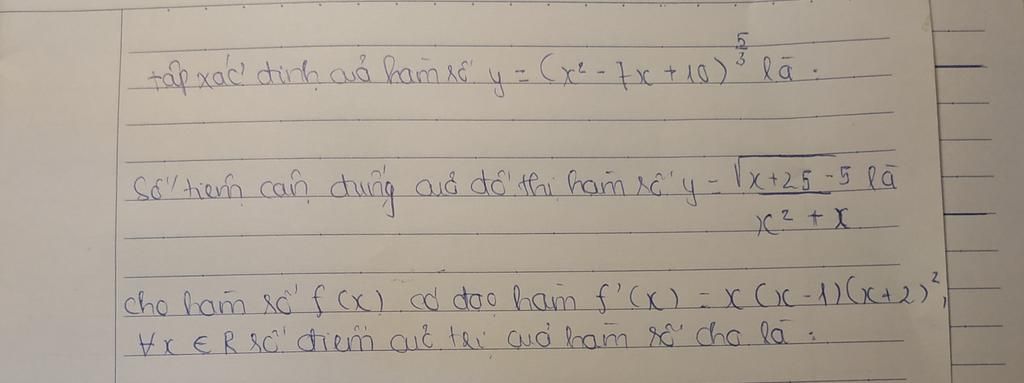 tập xác định của hàm số y = (x² - 7x + 10)^{5/3} là :
Số tiệm cận đứng của đồ thị hàm số y = \frac{\sqrt{x+25} - 5}{x² + x} là
cho hàm số f(x) có đạo hàm f'(x) = x(x-1)(x+2)²,
∀x ∈ R số điểm cực trị của hàm số cho là :